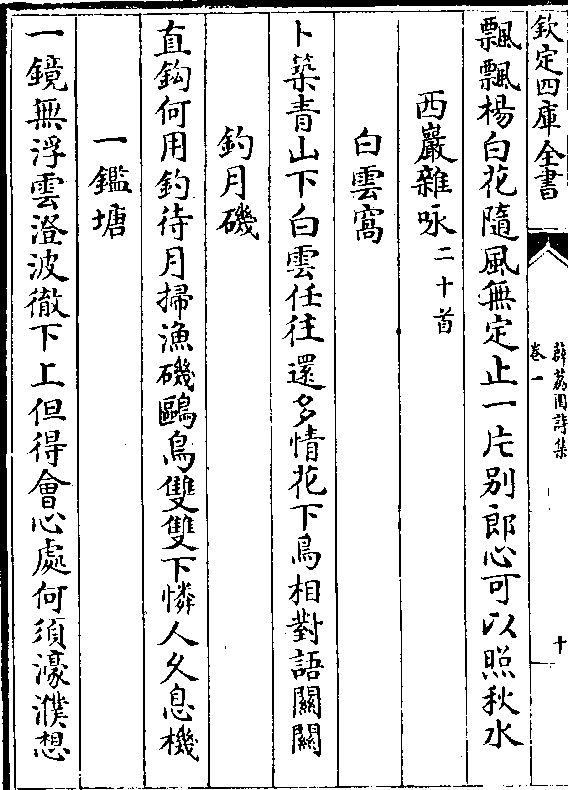 欽定四庫全書
薜荔園詩集
卷一
十
飄飄楊白花隨風無定止一片别郎心可以照秋水
西巖雜咏二十首
白雲窩
卜築青山下白雲任往還多情花下鳥相對語關關
釣月磯
直鈎何用釣待月掃漁磯鷗鳥雙雙下憐人久息機
一鑑塘
一鏡無浮雲澄波徹下上但得會心處何須濠濮想